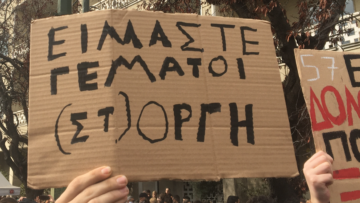 ΕΙΜΑΣΤΕ
ΓΕΜΑΤΟΙ
(ΣΤ)ΟΡΓΗ
57